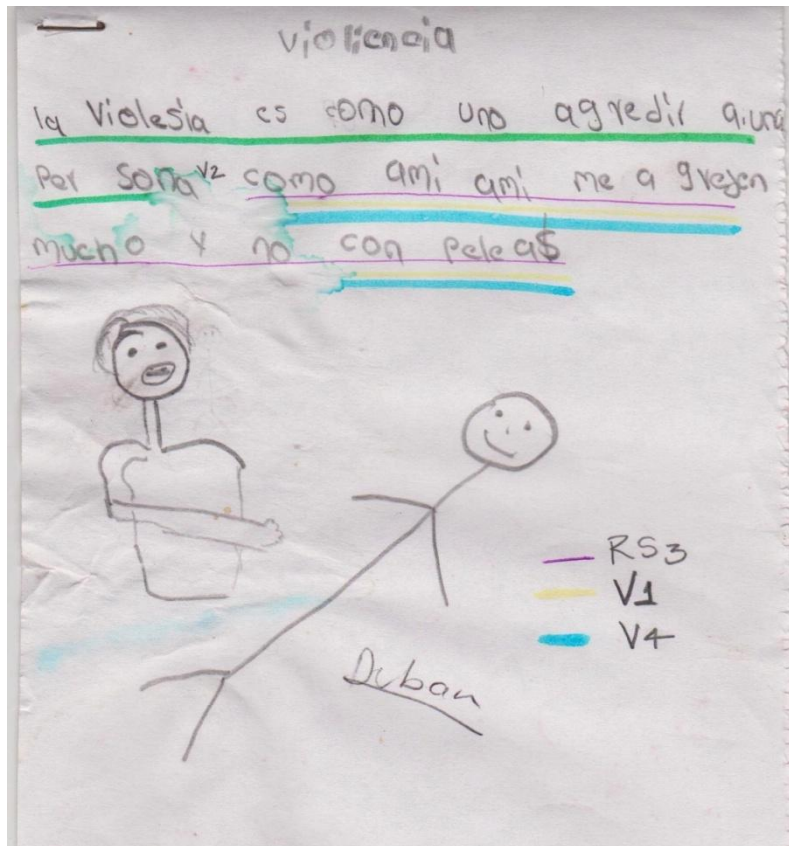 violiencia
la violesia es como uno agredir a.una
Per sona V2 como ami ami me a grejen
mucho y no con pelea$
RS3
V1
V4
Duban